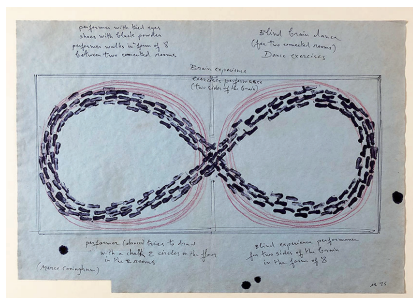 performer with tied eyes
shoes with black powder
performer walks in form of 8
between two conected rooms
Blind brain dance
(for two conected rooms)
Dance exercises
Brain experience
exercise performance
(two sides of the brain)
performer (dancer) tries to draw
with a chalk 2 circles on the floor
in the 2 rooms
(Merce Cuningham)
Blind experience performance
for two sides of the brain
in the form of 8